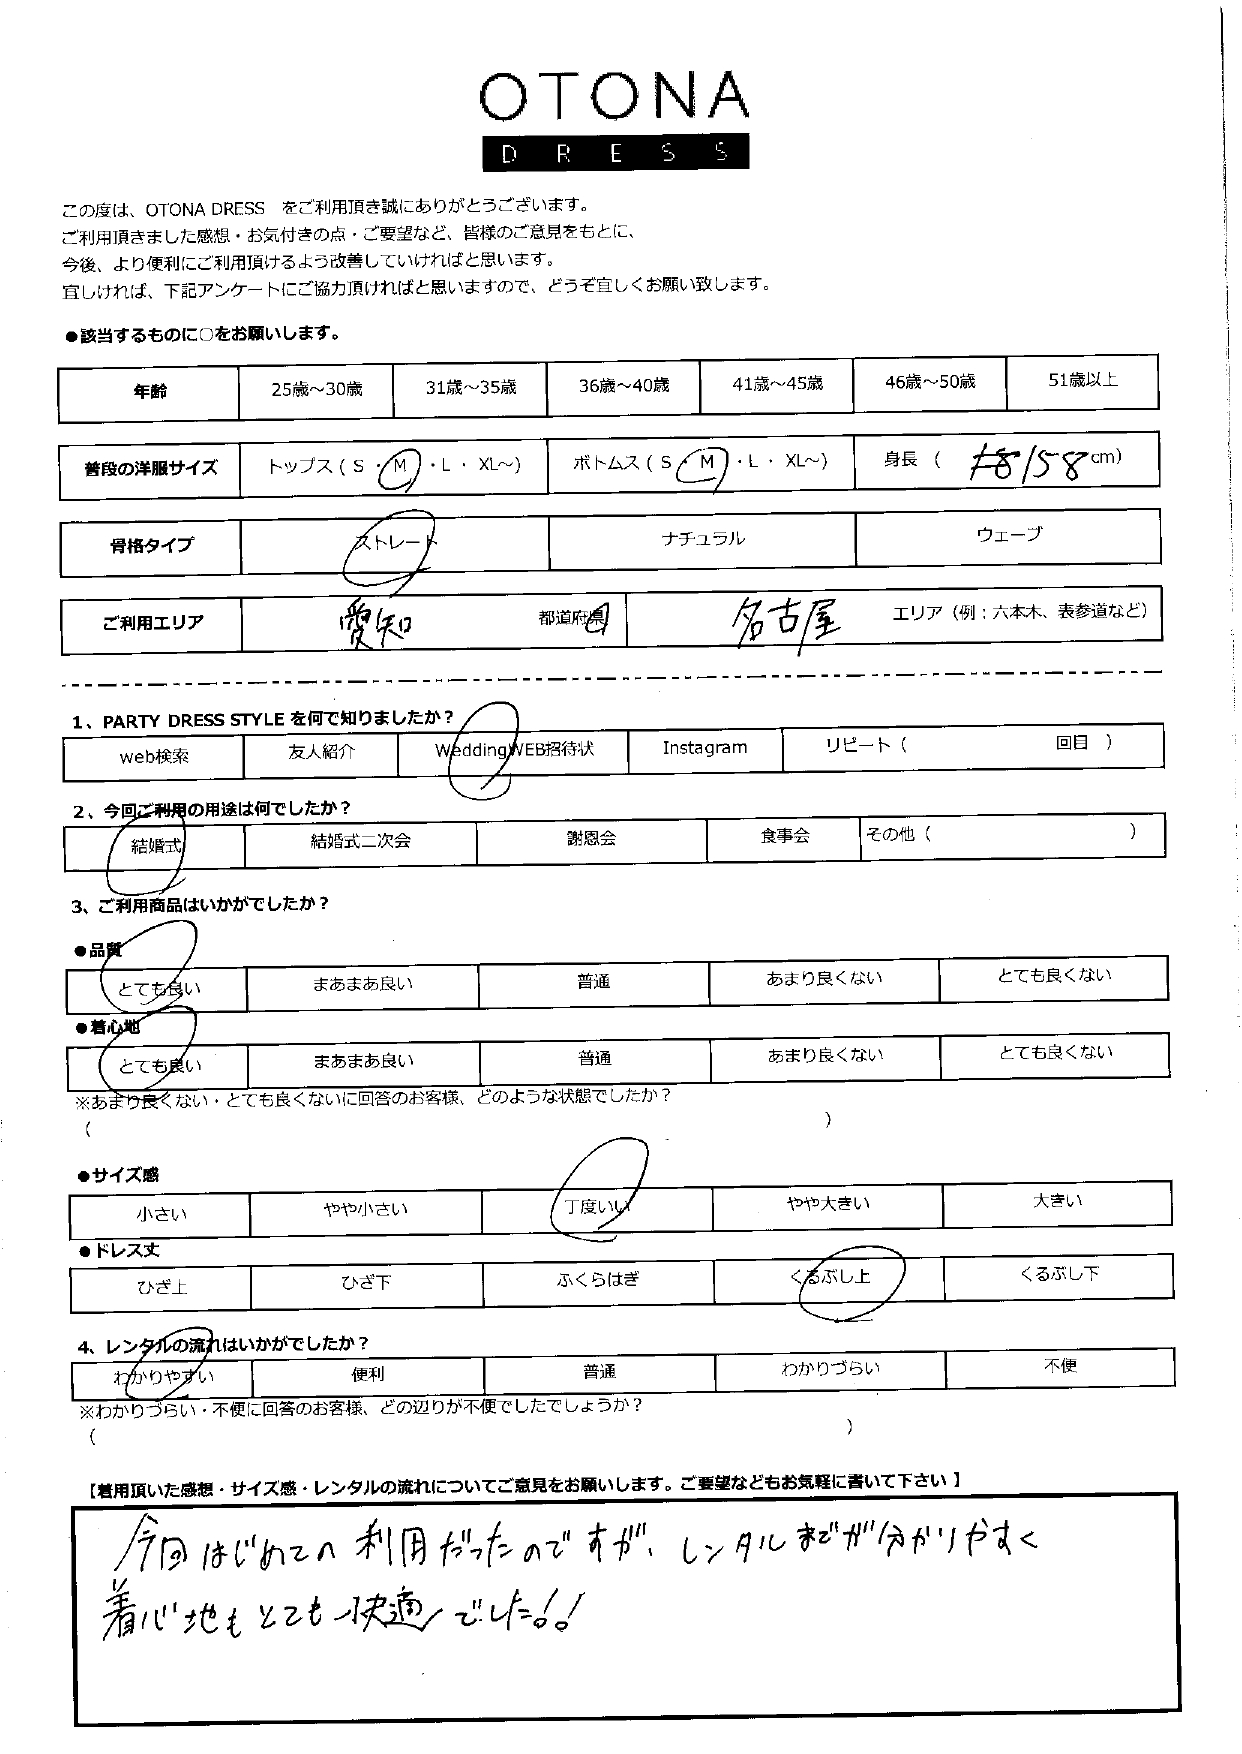 OTONA
DRESS
この度は、OTONA DRESS　をご利用頂き誠にありがとうございます。
ご利用頂きました感想・お気付きの点・ご要望など、皆様のご意見をもとに、
今後、より便利にご利用頂けるよう改善していければと思います。
宜しければ、下記アンケートにご協力頂ければと思いますので、どうぞ宜しくお願い致します。
●該当するものに○をお願いします。
年齢 25歳～30歳 31歳～35歳 36歳～40歳 41歳～45歳 46歳～50歳 51歳以上
普段の洋服サイズ トップス（ S ・ M ・ L ・ XL～） ボトムス（ S ・ M ・ L ・ XL～） 身長 （ 158 cm）
骨格タイプ ストレート ナチュラル ウェーブ
ご利用エリア 愛知 都道府県 名古屋 エリア（例；六本木、表参道など）
1、PARTY DRESS STYLE を何で知りましたか？
web検索 友人紹介 WeddingWEB招待状 Instagram リピート（ 回目 ）
2、今回ご利用の用途は何でしたか？
結婚式 結婚式二次会 謝恩会 食事会 その他（ ）
3、ご利用商品はいかがでしたか？
●品質
とても良い まあまあ良い 普通 あまり良くない とても良くない
●着心地
とても良い まあまあ良い 普通 あまり良くない とても良くない
※あまり良くない・とても良くないに回答のお客様、どのような状態でしたか？
（ ）
●サイズ感
小さい やや小さい 丁度いい やや大きい 大きい
●ドレス丈
ひざ上 ひざ下 ふくらはぎ くるぶし上 くるぶし下
4、レンタルの流れはいかがでしたか？
わかりやすい 便利 普通 わかりづらい 不便
※わかりづらい・不便に回答のお客様、どの辺りが不便でしたでしょうか？
（ ）
【着用頂いた感想・サイズ感・レンタルの流れについてご意見をお願いします。ご要望などもお気軽に書いて下さい 】
今回はじめての利用だったのですが、レンタルまでが分かりやすく
着心地もとても快適でした!!